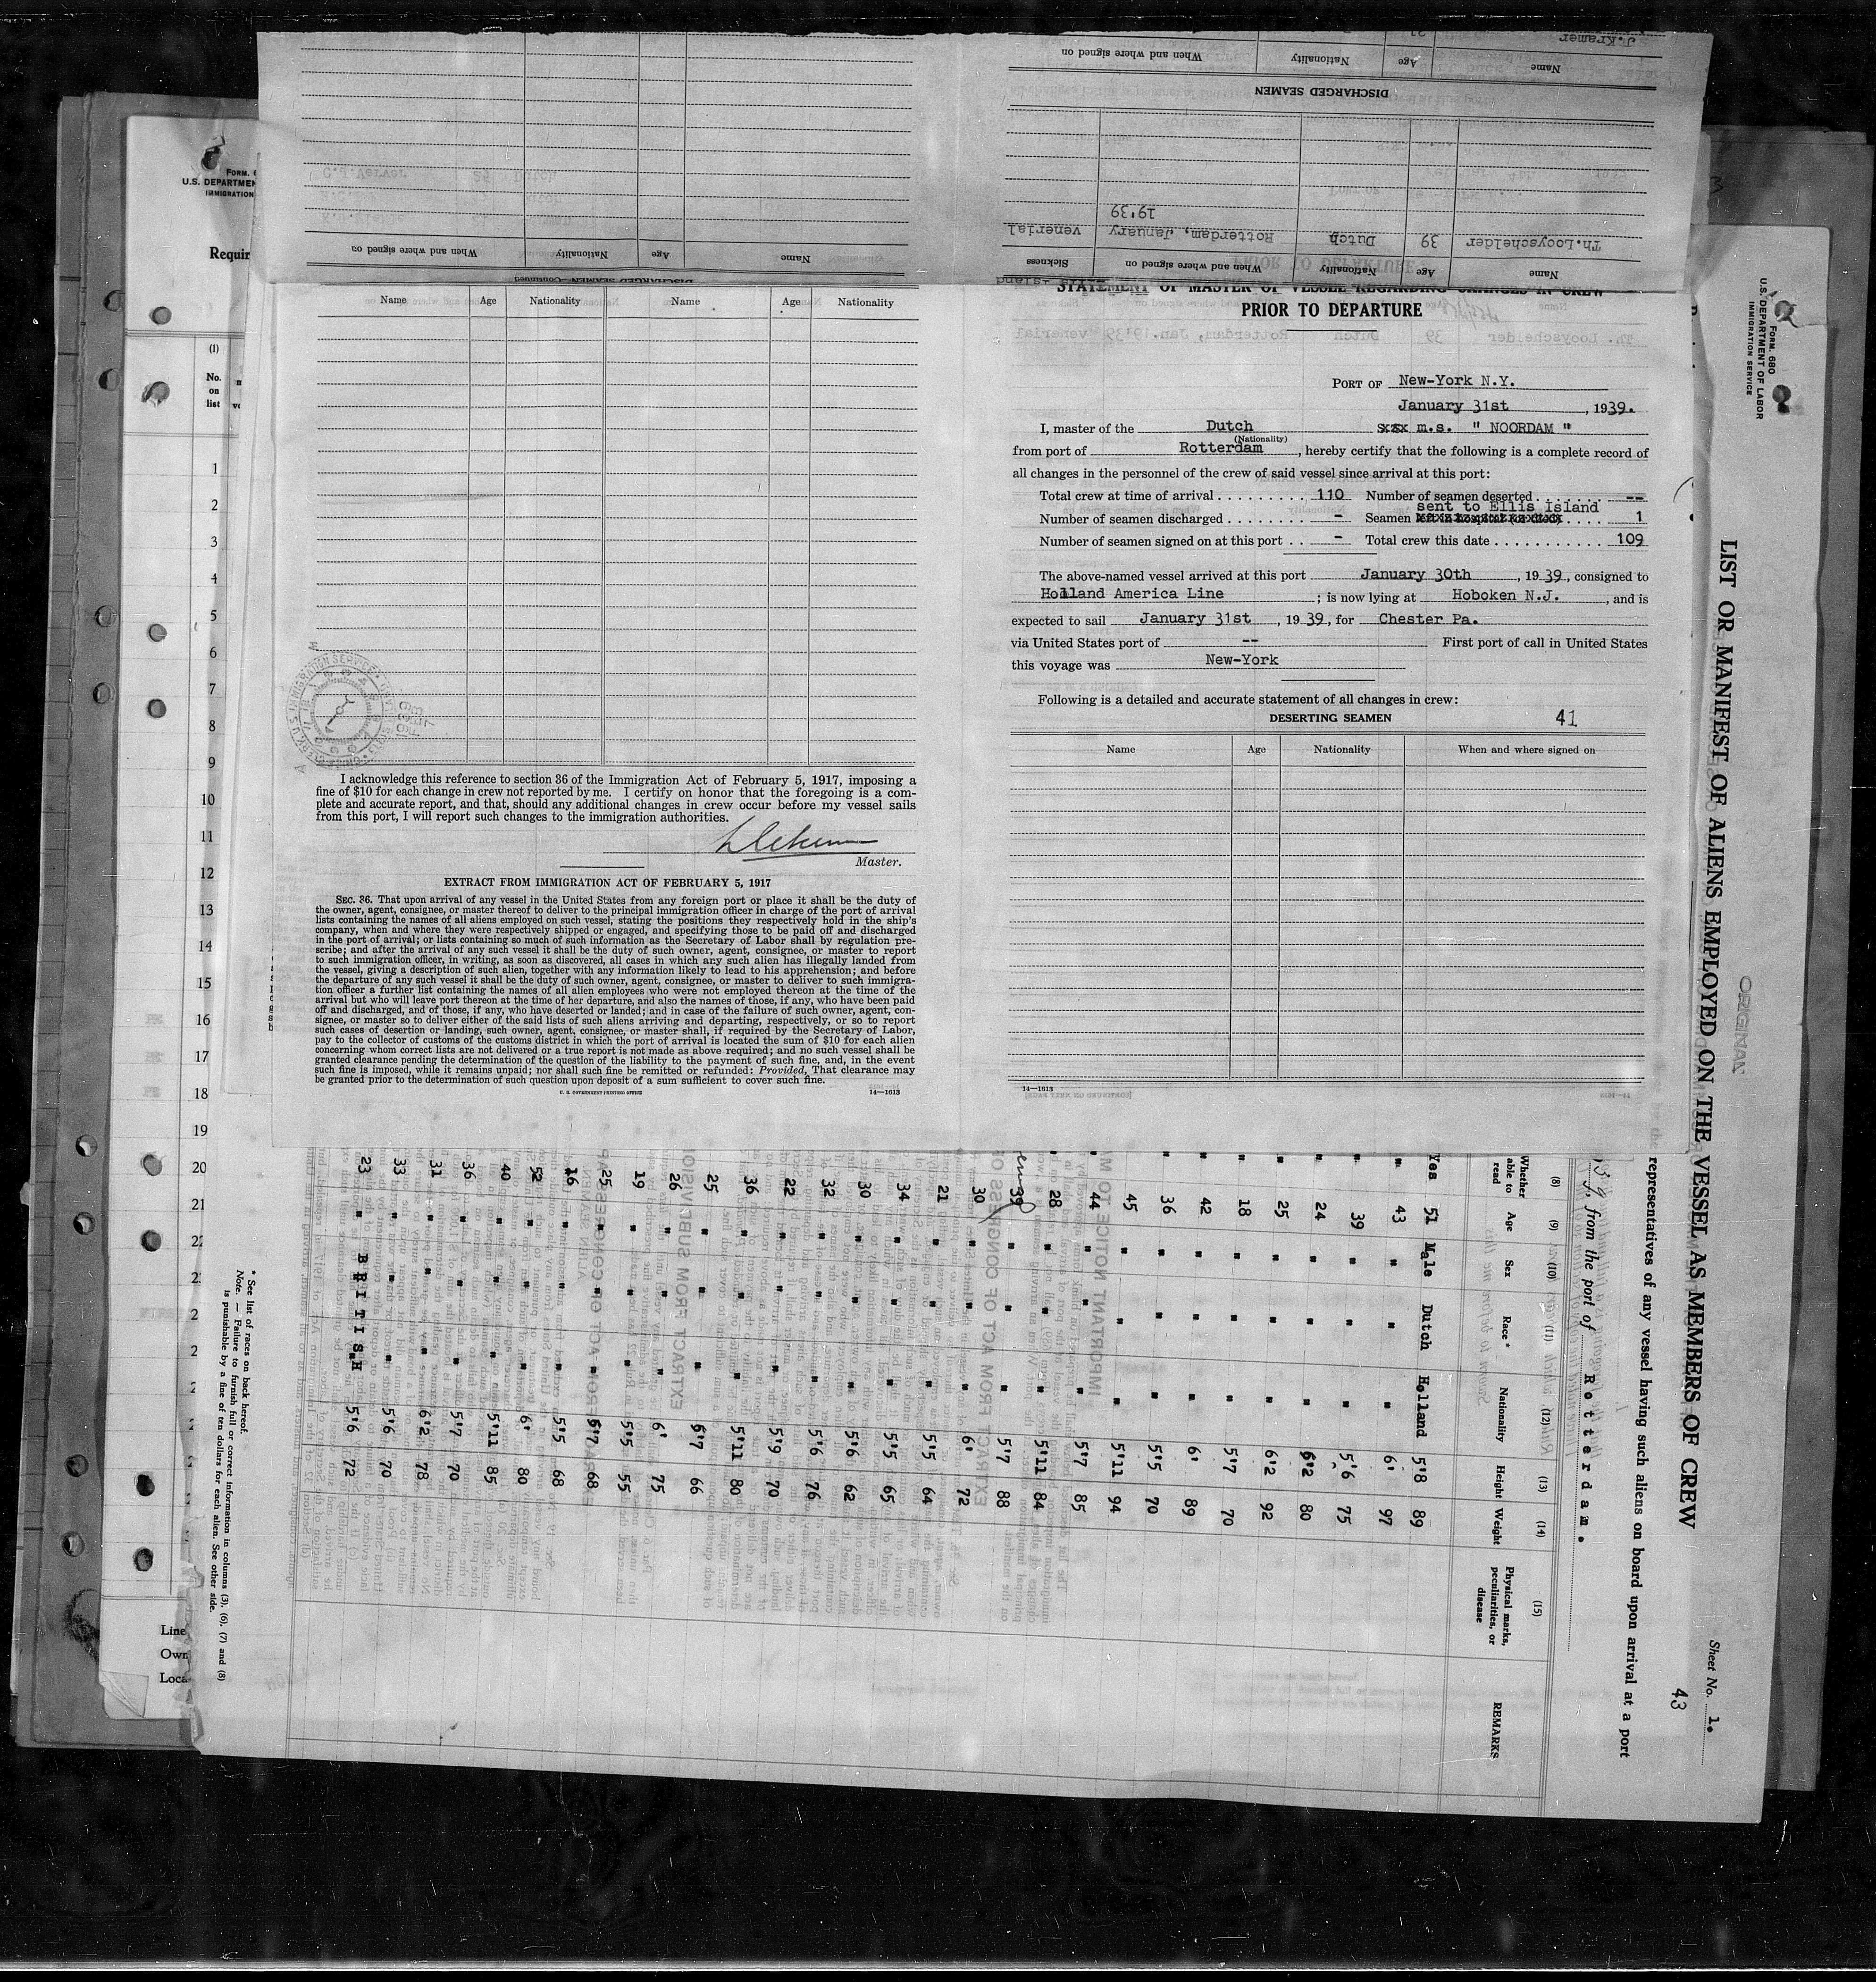 DISCHARGED SEAMEN
Name Age Nationality When and where signed on
J. Kramer
Name Age Nationality When and where signed on Sickness
Th.Looyschelder 39 Dutch Rotterdam, January 19'39 venerial
Name Age Nationality When and where signed on
FORM.
U.S. DEPARTMEN
IMMIGRATION
Requir
(1)
No.
on
list
1
2
3
4
5
6
7
8
9
10
11
12
13
14
15
16
17
18
19
20
21
Line
Own
Loca
Name Age Nationality Name Age Nationality
I acknowledge this reference to section 36 of the Immigration Act of February 5, 1917, imposing a
fine of $10 for each change in crew not reported by me. I certify on honor that the foregoing is a com-
plete and accurate report, and that, should any additional changes in crew occur before my vessel sails
from this port, I will report such changes to the immigration authorities.
Master.
EXTRACT FROM IMMIGRATION ACT OF FEBRUARY 5, 1917
SEC. 36. That upon arrival of any vessel in the United States from any foreign port or place it shall be the duty of
the owner, agent, consignee, or master thereof to deliver to the principal immigration officer in charge of the port of arrival
lists containing the names of all aliens employed on such vessel, stating the positions they respectively hold in the ship's
company, when and where they were respectively shipped or engaged, and specifying those to be paid off and discharged
in the port of arrival; or lists containing so much of such information as the Secretary of Labor shall by regulation pre-
scribe; and after the arrival of any such vessel it shall be the duty of such owner, agent, consignee, or master to report
to such immigration officer, in writing, as soon as discovered, all cases in which any such alien has illegally landed from
the vessel, giving a description of such alien, together with any information likely to lead to his apprehension; and before
the departure of any such vessel it shall be the duty of such owner, agent, consignee, or master to deliver to such immigra-
tion officer a further list containing the names of all alien employees who were not employed thereon at the time of the
arrival but who will leave port thereon at the time of her departure, and also the names of those, if any, who have been paid
off and discharged, and of those, if any, who have deserted or landed; and in case of the failure of such owner, agent, con-
signee, or master so to deliver either of the said lists of such aliens arriving and departing, respectively, or so to report
such cases of desertion or landing, such owner, agent, consignee, or master shall, if required by the Secretary of Labor,
pay to the collector of customs of the customs district in which the port of arrival is located the sum of $10 for each alien
concerning whom correct lists are not delivered or a true report is not made as above required; and no such vessel shall be
granted clearance pending the determination of the question of the liability to the payment of such fine, and, in the event
such fine is imposed, while it remains unpaid; nor shall such fine be remitted or refunded: Provided, That clearance may
be granted prior to the determination of such question upon deposit of a sum sufficient to cover such fine.
U. S. GOVERNMENT PRINTING OFFICE 14—1613
STATEMENT OF MASTER OF VESSEL REGARDING CHANGES IN CREW
PRIOR TO DEPARTURE
PORT OF New-York N.Y.
January 31st, 1939.
I, master of the Dutch m.s. " NOORDAM "
(Nationality)
from port of Rotterdam, hereby certify that the following is a complete record of
all changes in the personnel of the crew of said vessel since arrival at this port:
Total crew at time of arrival ......... 110 Number of seamen deserted ....... --
sent to Ellis Island
Number of seamen discharged ....... - Seamen .... 1
Number of seamen signed on at this port .. - Total crew this date ........... 109
The above-named vessel arrived at this port January 30th, 1939, consigned to
Holland America Line; is now lying at Hoboken N.J., and is
expected to sail January 31st, 1939, for Chester Pa.
via United States port of -- First port of call in United States
this voyage was New-York
Following is a detailed and accurate statement of all changes in crew:
DESERTING SEAMEN 41
Name Age Nationality When and where signed on
14—1613
FORM. 680
U.S. DEPARTMENT OF LABOR
IMMIGRATION SERVICE
ORIGINAL
LIST OR MANIFEST OF ALIENS EMPLOYED ON THE VESSEL AS MEMBERS OF CREW
Sheet No. 1.
43
representatives of any vessel having such aliens on board upon arrival at a port
from the port of Rotterdam.
(8) (9) (10) (11) (12) (13) (14) (15)
Whether able to read Age Sex Race* Nationality Height Weight Physical marks, peculiarities, or disease REMARKS
Yes 51 Male Dutch Holland 5'8 89
" 43 " " " 6' 97
" 39 " " " 5'6 75
" 24 " " " 6'2 80
" 25 " " " 6'2 92
" 18 " " " 5'7 70
" 42 " " " 6' 89
" 36 " " " 5'5 70
" 45 " " " 5'11 94
44 " " " 5'7 85
28 " " " 5'11 84
39 " " " 5'7 88
30 " " " 6' 72
21 " " " 5'5 64
34 " " " 5'5 65
30 " " " 5'6 62
32 " " " 5'6 76
22 " " " 5'9 70
36 " " " 5'11 80
25 " " " 6'7 66
26 " " " 6' 75
19 " " " 5'5 55
25 " " " 6'7 68
16 " " " 5'5 68
52 " " " 6' 80
40 " " " 5'11 85
36 " " " 5'7 70
31 " " " 6'2 78
33 " " " 5'6 70
23 " BRITISH 5'6 72
* See list of races on back hereof.
Note. — Failure to furnish full or correct information in columns (3), (6), (7) and (8)
is punishable by a fine of ten dollars for each alien. See other side.